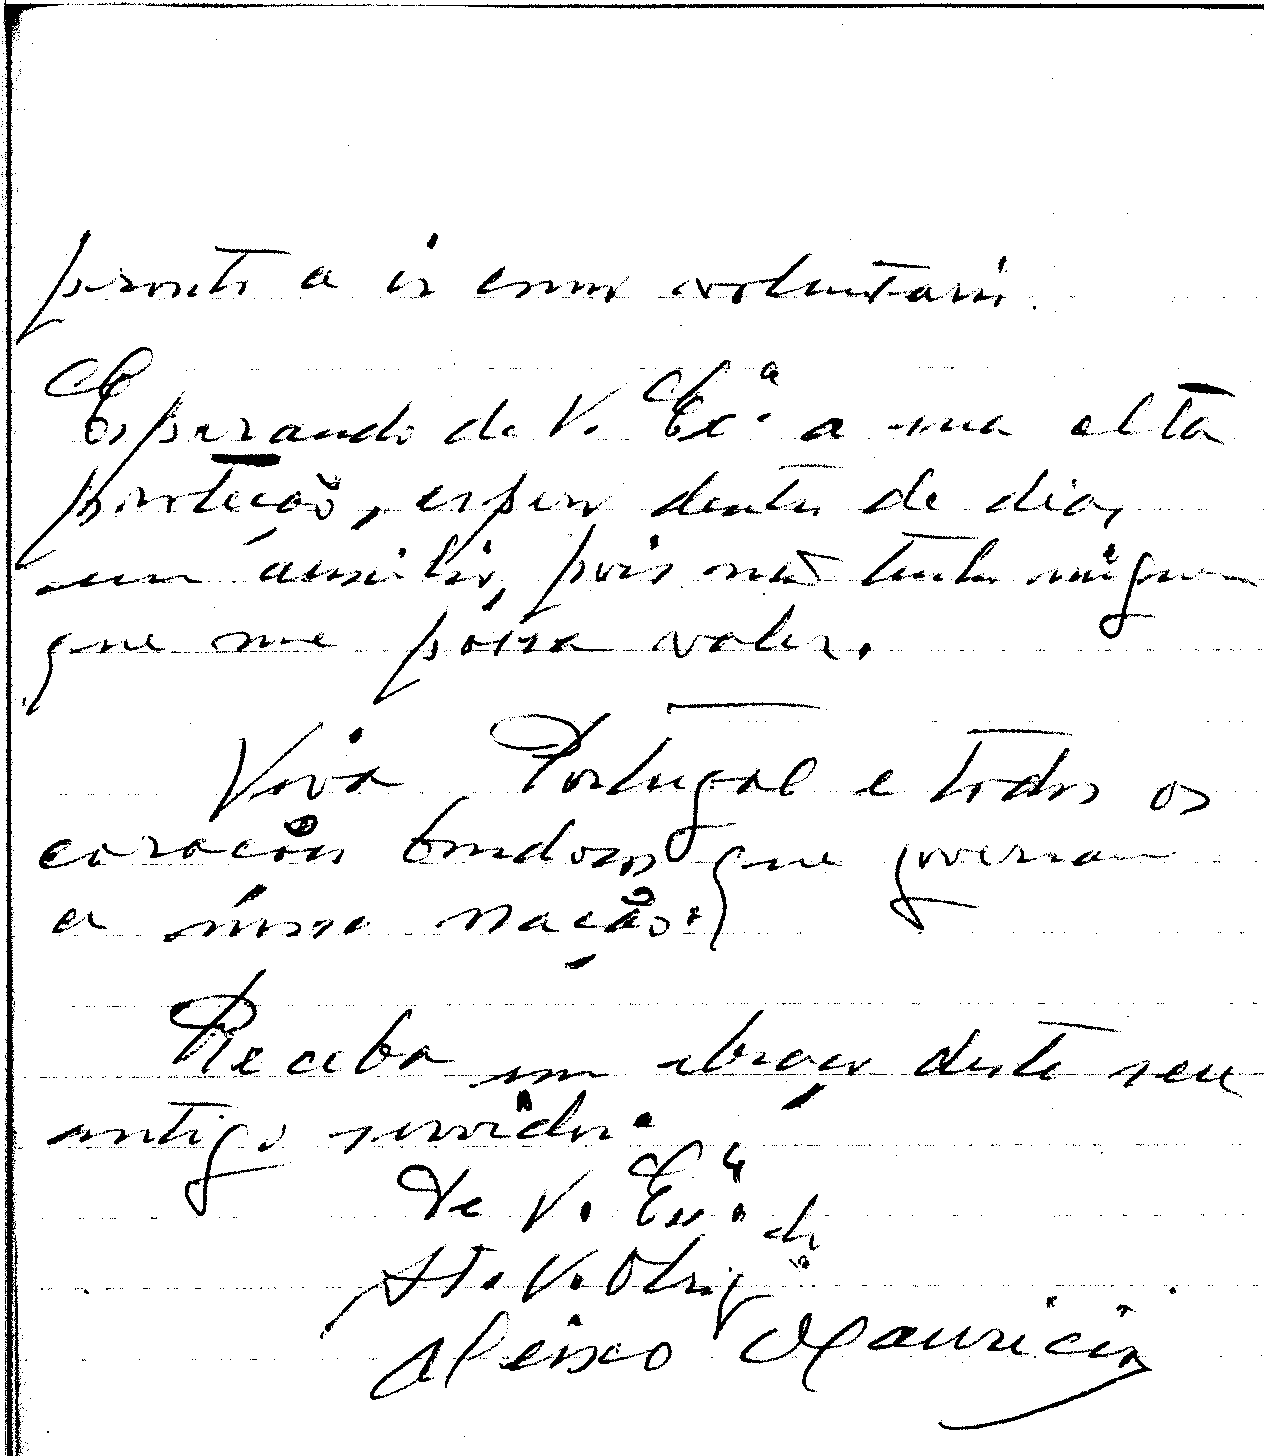 pronto a ir como voluntario.
Esperando de V. Exª a sua alta
proteção, espero dentro de dias
um áusilio, pois não tenho ninguem
que me póssa valer.
Viva Portugal e todos os
coracões bondosos que governam
a nóssa nação.
Receba um abraço deste seu
antigo servidor.
De V. Exª
At. V. Obrigº
Aleixo Mauricio